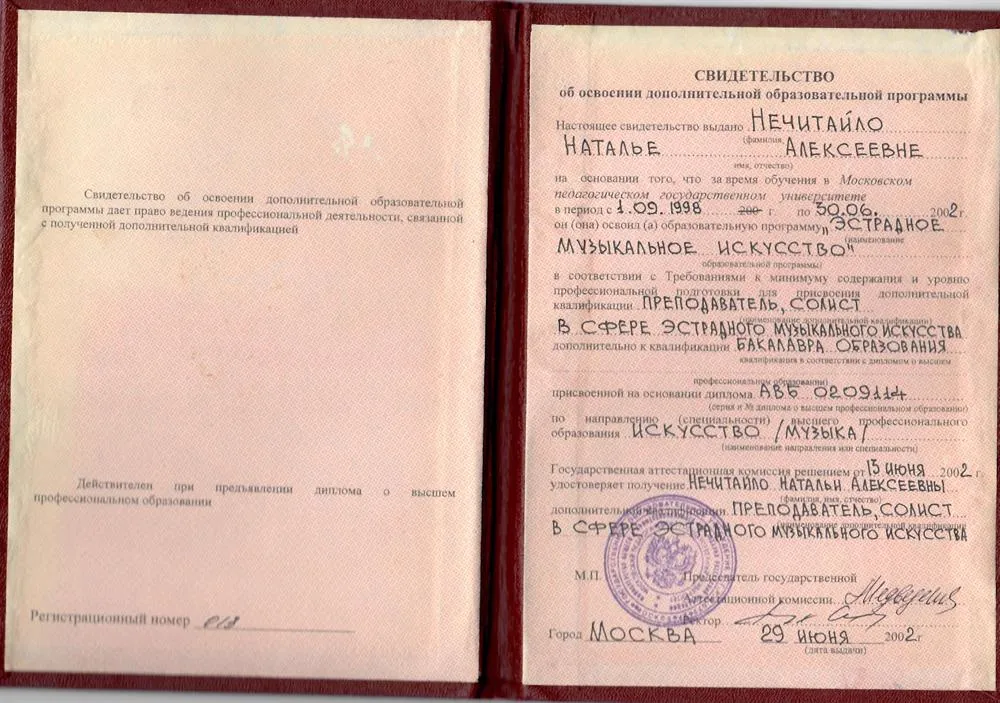 Свидетельство об освоении дополнительной образовательной
программы дает право ведения профессиональной деятельности, связанной
с полученной дополнительной квалификацией
Действителен при предъявлении диплома о высшем
профессиональном образовании
Регистрационный номер
СВИДЕТЕЛЬСТВО
об освоении дополнительной образовательной программы
Настоящее свидетельство выдано НЕЧИТАЙЛО
(фамилия,
НАТАЛЬЕ АЛЕКСЕЕВНЕ
имя, отчество)
на основании того, что за время обучения в Московском
педагогическом государственном университете
в период с 1.09.1998 200 г. по 30.06. 2002 г.
он (она) освоил (а) образовательную программу "ЭСТРАДНОЕ
(наименование
МУЗЫКАЛЬНОЕ ИСКУССТВО"
образовательной программы)
в соответствии с Требованиями к минимуму содержания и уровню
профессиональной подготовки для присвоения дополнительной
квалификации ПРЕПОДАВАТЕЛЬ, СОЛИСТ
(наименование дополнительной квалификации)
В СФЕРЕ ЭСТРАДНОГО МУЗЫКАЛЬНОГО ИСКУССТВА
дополнительно к квалификации БАКАЛАВРА ОБРАЗОВАНИЯ
квалификация в соответствии с дипломом о высшем
профессиональном образовании)
присвоенной на основании диплома АВБ 0209114
(серия и № диплома о высшем профессиональном образовании)
по направлению (специальности) высшего профессионального
образования ИСКУССТВО /МУЗЫКА/
(наименование направления или специальности)
Государственная аттестационная комиссия решением от 13 ИЮНЯ 2002 г.
удостоверяет получение НЕЧИТАЙЛО НАТАЛЬИ АЛЕКСЕЕВНЫ
(фамилия, имя, отчество)
дополнительной квалификации ПРЕПОДАВАТЕЛЬ, СОЛИСТ
(наименование дополнительной квалификации
В СФЕРЕ ЭСТРАДНОГО МУЗЫКАЛЬНОГО ИСКУССТВА
М.П. Председатель государственной
аттестационной комиссии
Ректор
Город МОСКВА 29 ИЮНЯ 2002 г.
(дата выдачи)